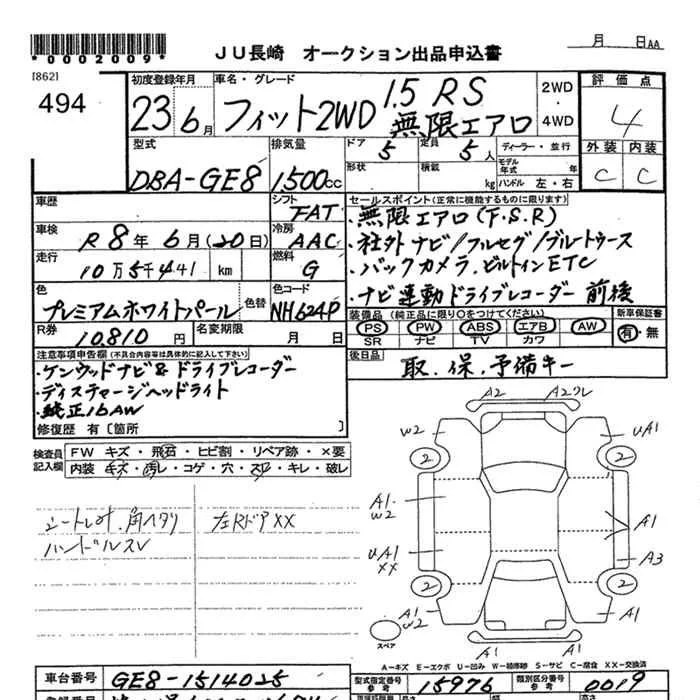 *0002009*
JU長崎 オークション出品申込書
月 日AA
[862]
494
初度登録年月
23 6月
車名・グレード
フィット2WD 1.5 RS
無限エアロ
2WD
・
4WD
評価点
4
外装 内装
C C
型式
DBA-GE8
排気量
1500cc
ドア 5
定員 5人
ディーラー・並行
形状
積載 kg
モデル年式 年
ハンドル 左・右
車歴
シフト
FAT
車検
R8年6月(20日)
冷房
AAC
走行
10万5千441 km
燃料
G
色
プレミアムホワイトパール
色替
色コード
NH624P
R券
10,810円
名変期限
月 日
セールスポイント(正常に機能するものに限ります)
・無限エアロ(F.S.R)
・社外ナビ/フルセグ/ブルートゥース
・バックカメラ.ビルトインETC
・ナビ連動ドライブレコーダー前後
装備品(純正品に限り○をつけてください)
PS PW ABS エアB AW
SR ナビ TV カワ
新車保証書
有・無
後日品
取.保.予備キー
注意事項申告欄(不具合内容等は具体的に記入して下さい)
・ケンウッドナビ&ドライブレコーダー
・ディスチャージヘッドライト
・純正16AW
修復歴 有〔箇所 〕
検査員記入欄
FW キズ・飛石・ヒビ割・リペア跡・×要
内装 キズ・汚レ・コゲ・穴・スレ・キレ・破レ
シートレオ.角ヘタリ
ハンドルスレ
左RドアXX
A2 A2クレ
W2 UA1
2 2
A1.
W2
A1
UA1
XX
A3
2 2
A1
W2
A1
A1 A1
スペア
A−キズ E−エクボ U−凹み W−補修跡 S−サビ C−腐食 XX−交換済
車台番号
GE8-1514025
型式指定番号
参考
15976
類別区分番号
参考
0019